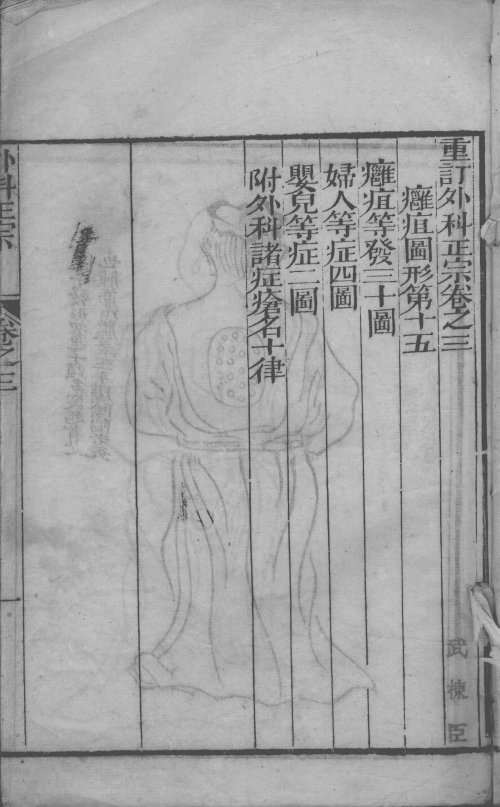 重訂外科正宗卷之三
癰疽圖形第十五
癰疽等發三十圖
婦人等症四圖
嬰兒等症二圖
附外科諸症瘡名十律
武棟臣
外科正宗
卷之三
一